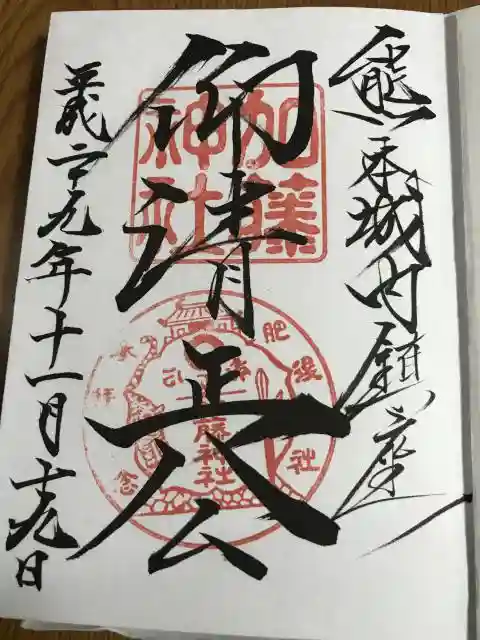 熊本城内鎮座
仰清正公
平成二十九年十一月十九日
加藤神社
肥後
社
参拝
記念
藤神社